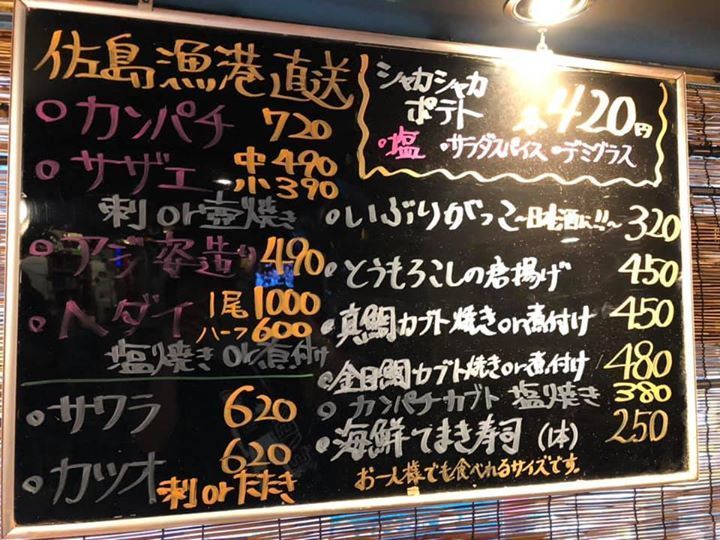 佐島漁港直送
・カンパチ 720
・サザエ 中490
小390
刺or壺焼き
・アジ姿造り 490
・ヘダイ 1尾1000
ハーフ600
塩焼きor煮付け
・サワラ 620
・カツオ 620
刺orたたき
シャカシャカ
ポテト 各420円
・塩 ・サラダスパイス ・デミグラス
・いぶりがっこ〜日本酒に!!〜 320
・とうもろこしの唐揚げ 450
・真鯛カブト焼きor煮付け 450
・金目鯛カブト焼きor煮付け 480
・カンパチカブト 塩焼き 380
・海鮮てまき寿司 (1本) 250
お一人様でも食べれるサイズです。